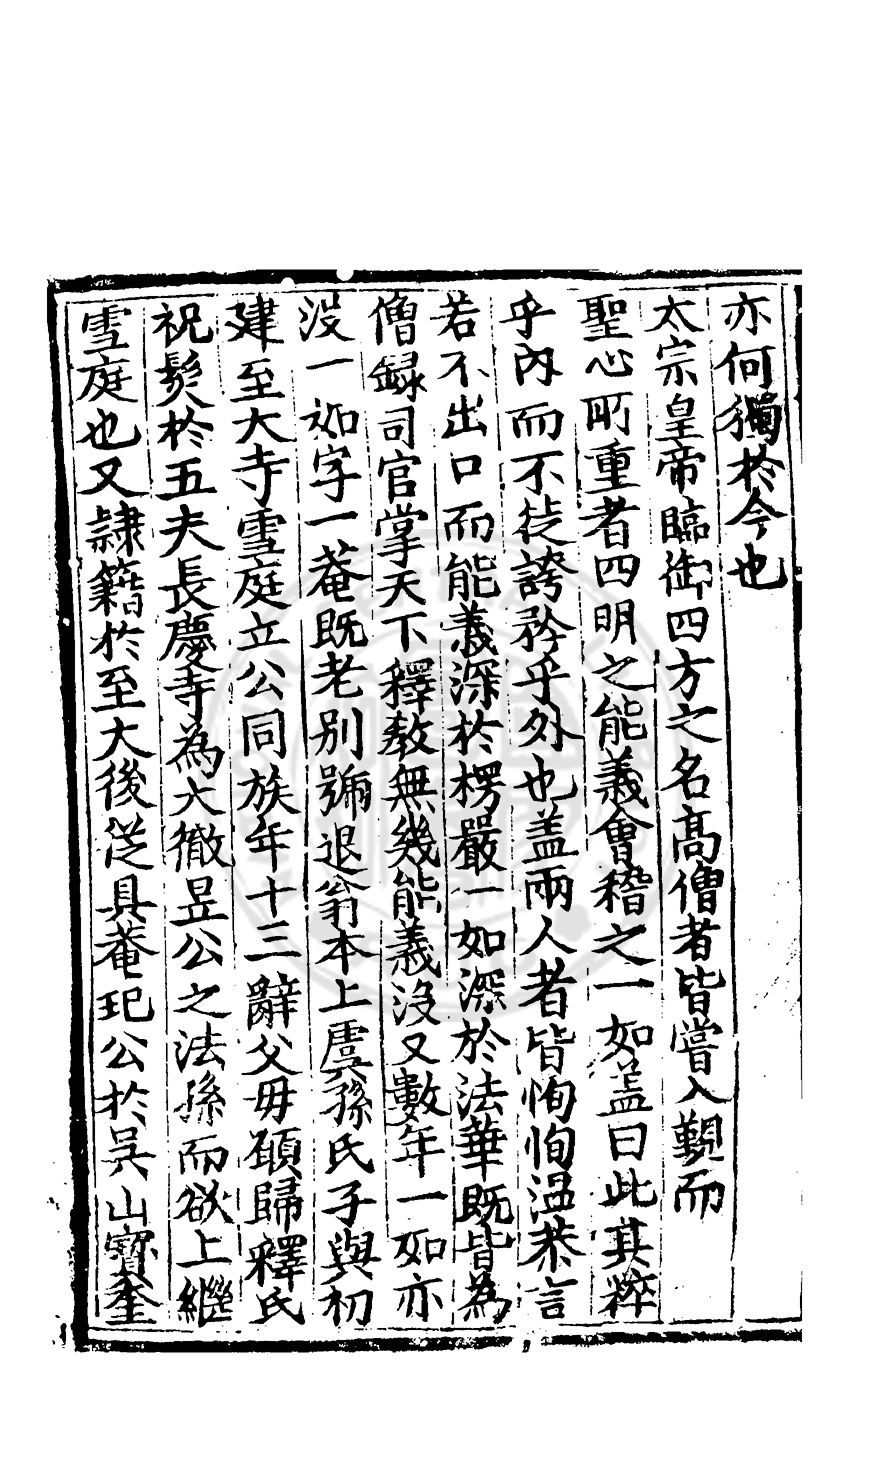 亦何獨於今也
太宗皇帝臨御四方之名髙僧者皆嘗入覲而
聖心所重者四明之能義會稽之一如盖曰此其粹
乎內而不徒誇矜乎外也盖兩人者皆恂恂温恭言
若不出口而能義深於楞嚴一如深於法華既皆為
僧録司官掌天下釋教無幾能義沒又數年一如亦
沒一如字一菴既老别號退翁本上虞孫氏子與初
建至大寺雪庭立公同族年十三辭父毋願歸釋氏
祝髮於五夫長慶寺為大徹昱公之法孫而欲上繼
雪庭也又隷籍於至大後從具菴玘公於吳山寶奎